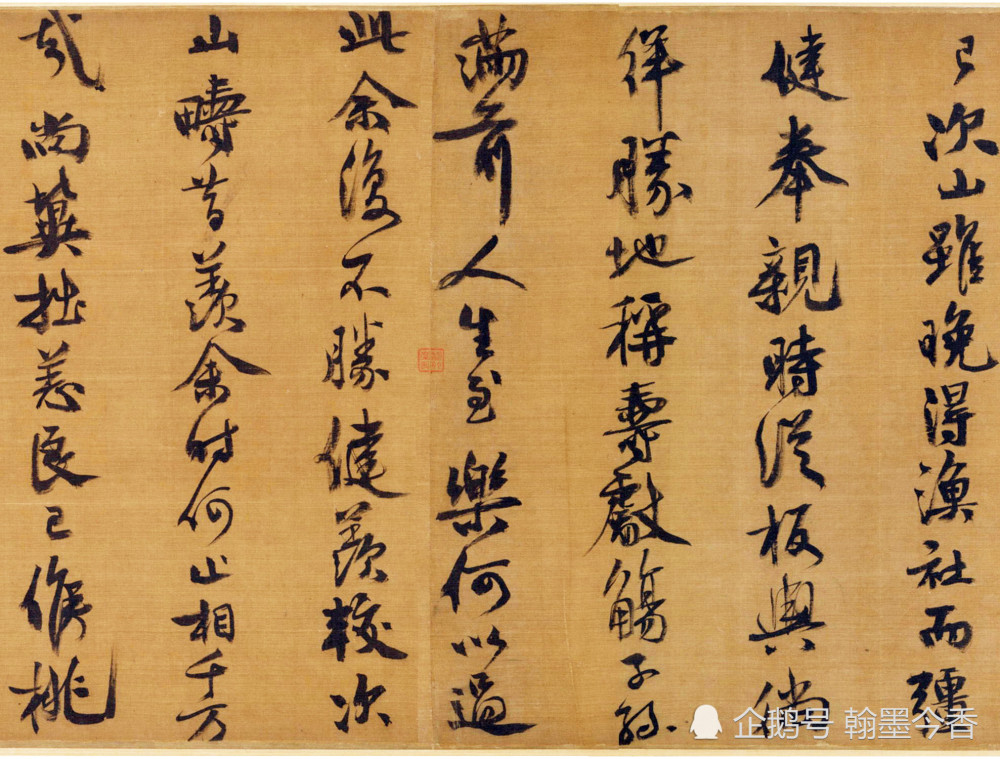 已次山雖晚得漁社而彊
健奉親時從板輿徜
徉勝地稱壽獻觴子孫
滿前人生至樂何以過
此余復不勝健羨較次
山疇昔羨余時何止相千万
哉尚冀拙恙良已候桃
企鹅号 翰墨今香